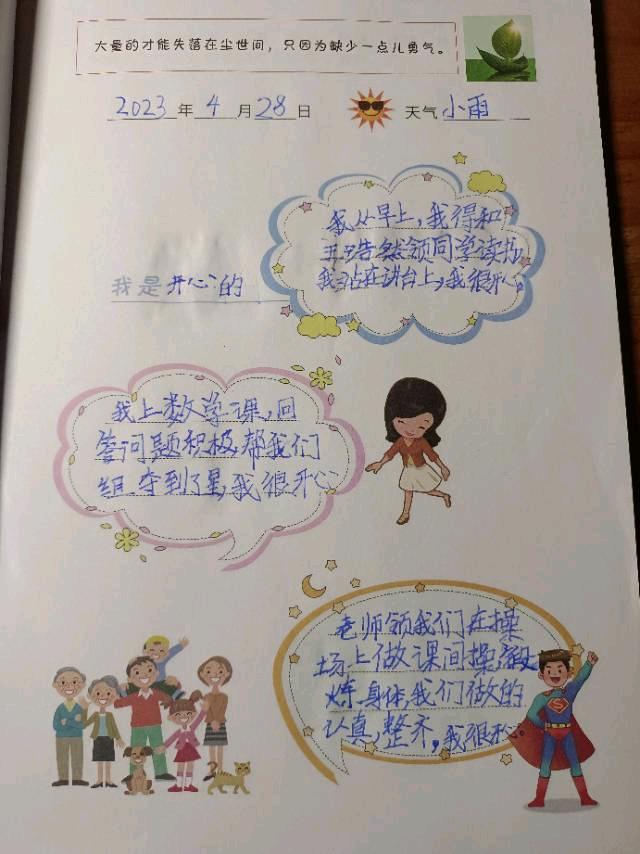 大量的才能失落在尘世间，只因为缺少一点儿勇气。
2023年4月28日 天气 小雨
我从早上，我得和
王浩然领同学读书，
我站在讲台上，我很开心。
我是 开心 的
我上数学课，回
答问题积极，帮我们
组夺到了星，我很开心
老师领我们在操
场上做课间操，锻
炼身体，我们做的
认真，整齐，我很开心